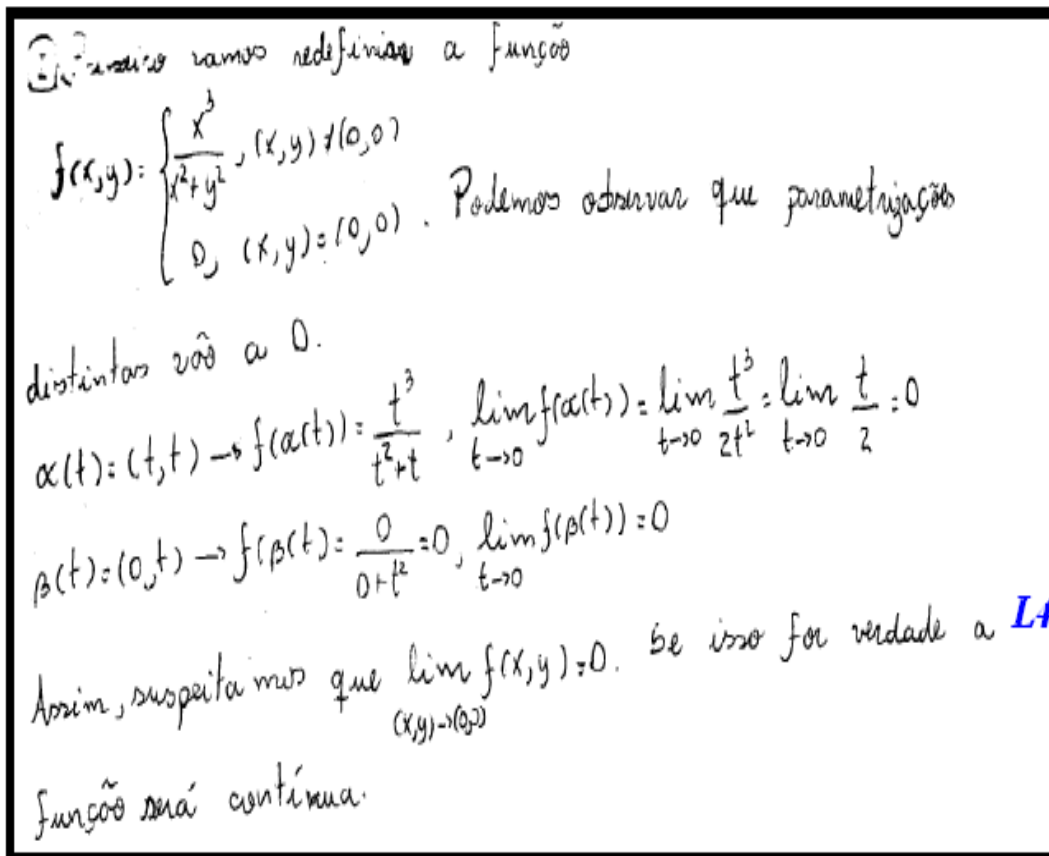 vamos redefinir a função
f(x,y)= { x³/(x²+y²), (x,y)≠(0,0)
0, (x,y)=(0,0) . Podemos observar que parametrizações
distintas vão a 0.
α(t)=(t,t) → f(α(t))= t³/(t²+t) , lim t→0 f(α(t))= lim t→0 t³/2t² = lim t→0 t/2 =0
β(t)=(0,t) → f(β(t)= 0/(0+t²) =0, lim t→0 f(β(t))=0
Assim, suspeitamos que lim (x,y)→(0,0) f(x,y)=0. Se isso for verdade a
função será contínua.